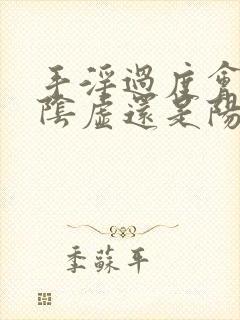 手淫過度會
陰虛還是陽
季蘇平